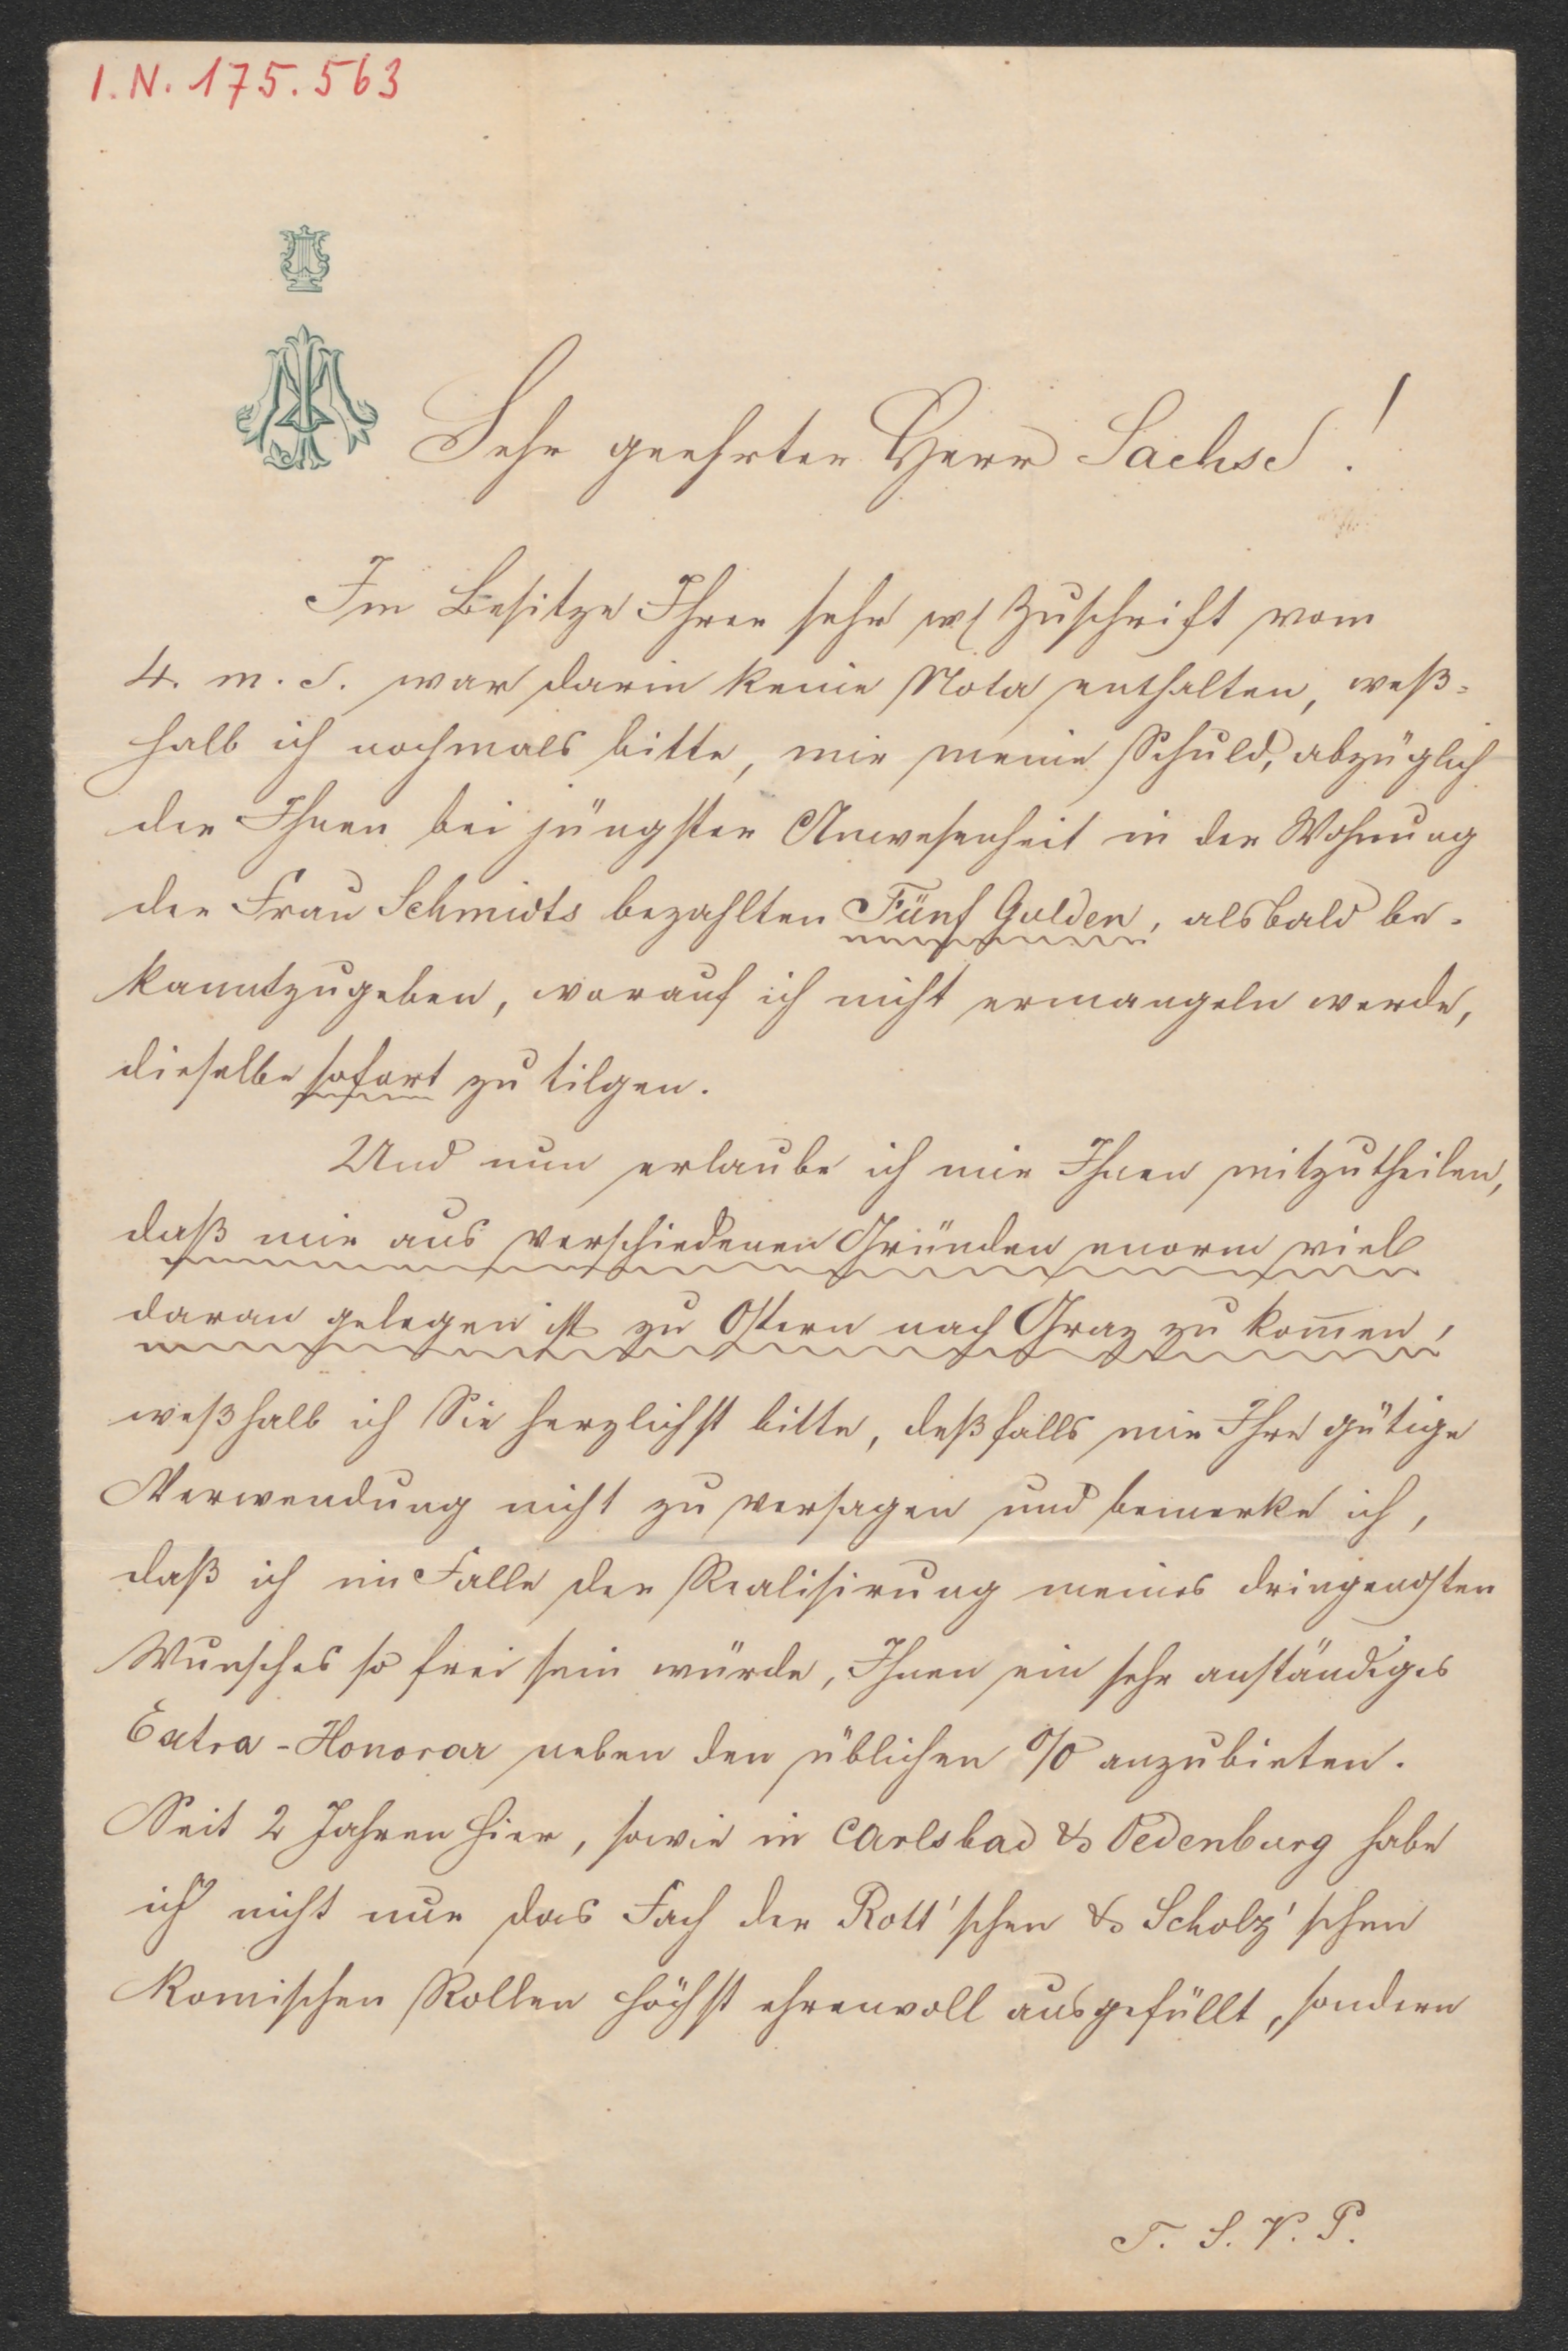 I.N. 175.563
Sehr geehrter Herr Sachse!
Im Besitze Ihrer sehr w. Zuschrift vom
4. m. c. war darin keine Nota enthalten, weß=
halb ich nochmals bitte, mir meine Schuld, abzüglich
der Ihnen bei jüngster Anwesenheit in der Wohnung
der Frau Schmidts bezahlten Fünf Gulden, alsbald be=
kanntzugeben, worauf ich nicht ermangeln werde,
dieselbe sofort zu tilgen.
Und nun erlaube ich mir Ihnen mitzutheilen,
daß mir aus verschiedenen Gründen enorm viel
daran gelegen ist zu Ostern nach Graz zu kom̅en,
weßhalb ich Sie herzlichst bitte, deßfalls mir Ihre gütige
Verwendung nicht zu versagen und bemerke ich,
daß ich im Falle der Realisirung meines dringendsten
Wunsches so frei sein würde, Ihnen ein sehr anständiges
Extra-Honorar neben den üblichen % anzubieten.
Seit 2 Jahren hier, sowie in Carlsbad & Oedenburg habe
ich nicht nur das Fach der Rott'schen & Scholz'schen
komischen Rollen höchst ehrenvoll ausgefüllt, sondern
T. S. V. P.